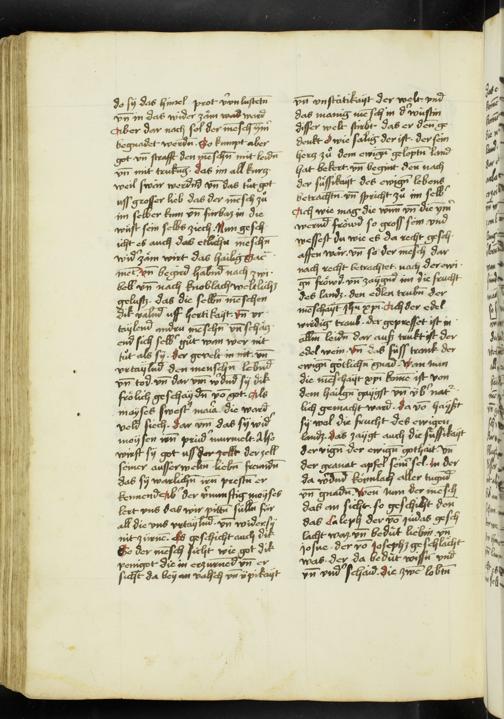 do sy das himel prot von lusten
vn in das wider zäm was ward
Aber dar nach sol der mesch ym
begnadet werden. So kumpt aber
got vn strafft den meschn mit leidn
vn mit trukug. das im all kurcz
weil swär werdn vn das tut got
uss grosser lieb das der mesch zu
im selber kum vn fürbaz in die
wüst sein selbs ziech. Nun gesch
icht es auch das etlichn meschn
wid zäm wirt das hailig
vn begird habend nach zwi
bell vn nach knoblach weltlichs
gelusts. das die selbn meschen
dik valend uff hertikait vn vr
taylend andru meschn vn schacz
end sich selb gut wan wer nit
tüt als sy. der gevelt in nit. vn
vrtaylend den menschen lebend
vn tod vn dar vm wend sy dik
frölich geschaydn vo got. Als
moyses swest maria. die ward
veld siech. dar vm das sy wid
moysen irn prud murmelt. Also
wirst sy got uss der zell
seiner ausserweltn liebn freundn
das sy warlichn irn presten er
kennend. Ob der vnunftig moyses
kert vns das wir pittn sulln für
all die vns vrtaylend vn widersy
nit zürne. Es geschicht auch dik
So der mesch sicht wie got dik
reiniget die in erzurnend vn er
sicht da bey an valsch vn üpikayt
vn vnstätikayt der welt. vnd
das manig mesch in d wüstin
disser welt stirbt. das er den ge
denkt. O wie sälig der ist. der sein
hercz zu dem ewign geloptn land
hat bekert. vn begint den nach
der süssikait des ewign lebens
betrachtn. vn spricht zu im selb
Ach wie mag die wun vn die ym
wernd fröwd so gross sein. vnd
wessest du wie es da recht gesch
affen wär. vn so der mesch dar
nach recht betrachtet. nach der ewi
gn fröwd vn zaygnd im die frucht
des landz. den edlen trubn der
meschayt jhu xpi. Ach der edel
wirdig traub. der gepresset ist in
allm leidn dar auss trukt ist der
edel wein. vn das süss trank der
ewign götlichn gnad. Wan nun
die meschayt xpi kome ist von
dem hailgn gayst vn
lich gemacht ward. da vo haysst
sy wol die frucht des ewigen
landz. das zaygt auch die süssikayt
der vign der ewign gothait vn
der granat apfel sein sel. in der
da sind körnlach aller tugnd
vn gnadn. Wen nun der mesch
das an sicht. so geschicht den
das Caleph der vo judas gesch
lächt waz vn bedüt liebin vn
josue. der vo josephz geschlächt
was. der da bedüt wissn vnd
vn vnd schaid. die zwen lobtn